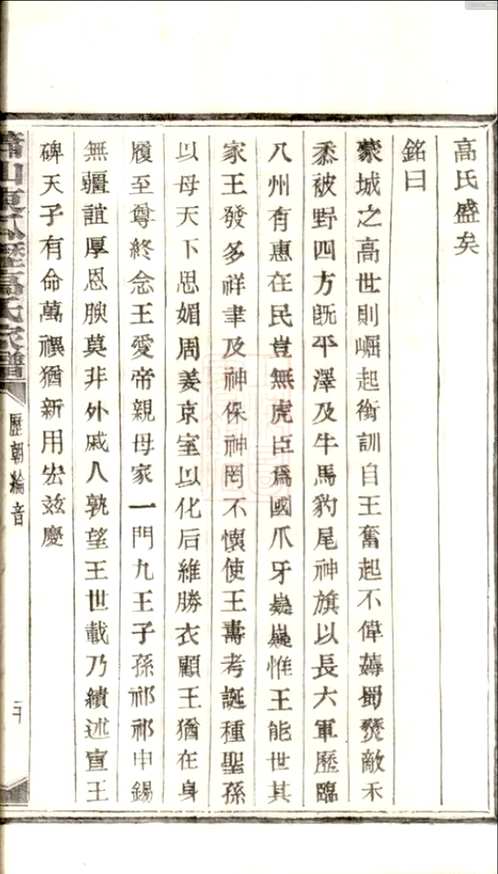 高氏盛矣
銘曰
蒙城之高世則崛起衡訓自王奮起不偉薅蜀燹敵禾
黍被野四方既平澤及牛馬豹尾神旗以長六軍歷臨
八州有惠在民豈無虎臣爲國爪牙巍巍惟王能世其
家王發多祥聿及神保神罔不懷使王壽考誕種聖孫
以母天下思媚周姜京室以化后維勝衣顧王猶在身
履至尊終念王愛帝親母家一門九王子孫祁祁申錫
無疆誼厚恩腴莫非外戚人孰望王世載乃績述宣王
碑天子有命萬禩猶新用宏玆慶
蕭山東 歷高氏家譜
歷朝綸音
二十